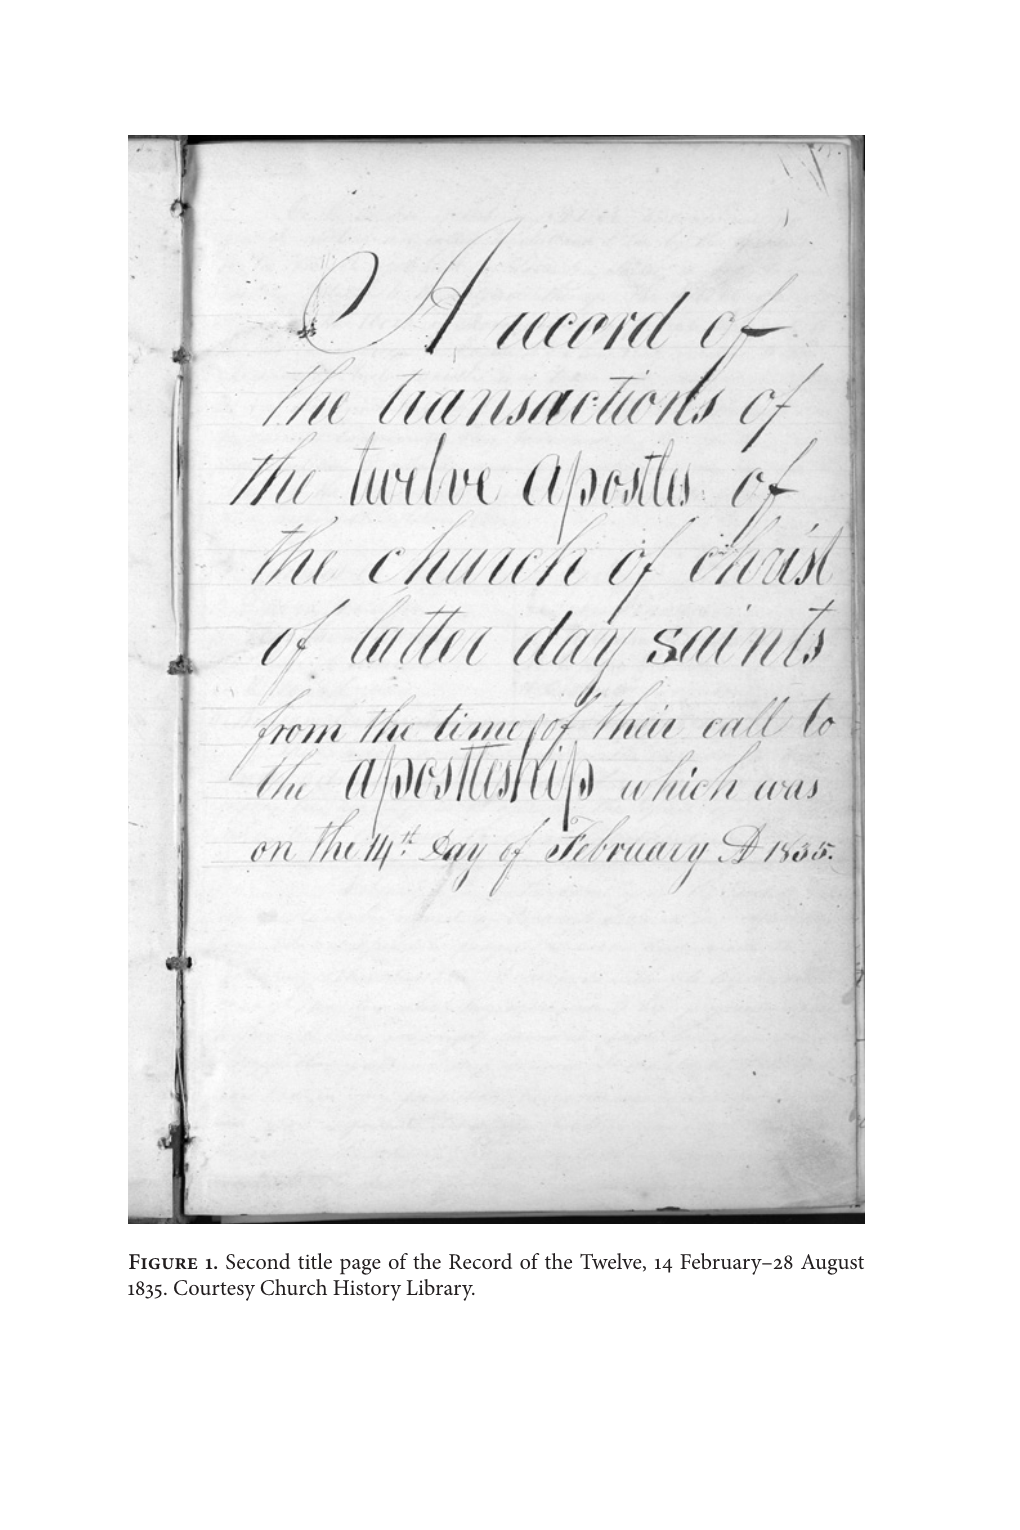 A record of
the transactions of
the twelve apostles of
the church of christ
of latter day saints
from the time of their call to
the apostleship which was
on the 14th Day of February AD 1835.
Figure 1. Second title page of the Record of the Twelve, 14 February–28 August
1835. Courtesy Church History Library.